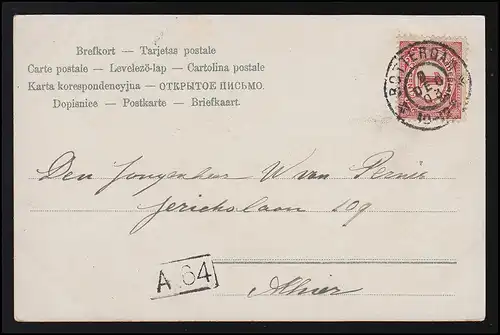 Brefkort — Tarjetas postale
Carte postale — Levelező-lap — Cartolina postale
Karta korespondencyjna — ОТКРЫТОЕ ПИСЬМО.
Dopisnice — Postkarte — Briefkaart.
ROTTERDAM
DEC
10-12
Den Jongenheer W van Pernis
Jericholaan 109
A 64
Alhier